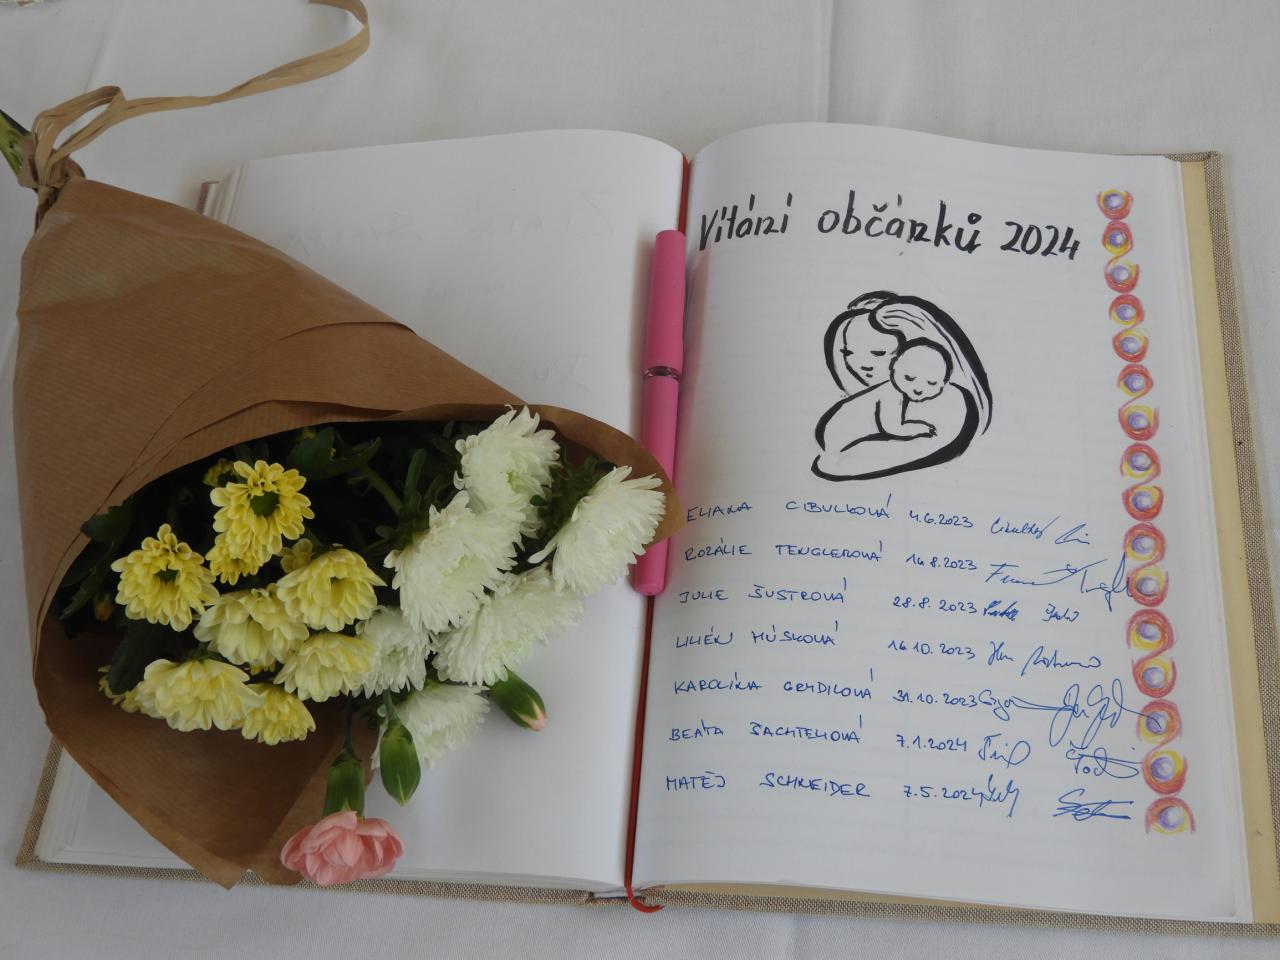 Vítání občánků 2024
ELIANA CIBULKOVÁ 4.6.2023
ROZÁLIE TENGLEROVÁ 16.8.2023
JULIE ŠUSTROVÁ 28.8.2023
LILIÉN MÚSKOVÁ 16.10.2023
KAROLÍNA GRYDILOVÁ 31.10.2023
BEÁTA ŠACHTELOVÁ 7.1.2024
MATĚJ SCHNEIDER 7.5.2024